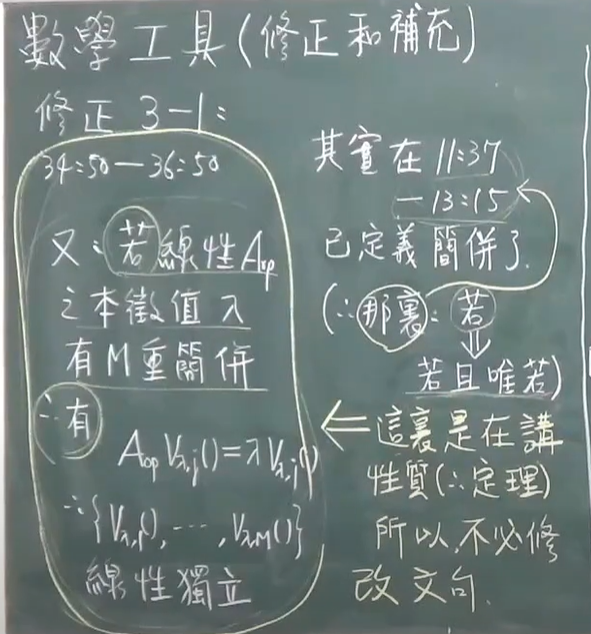 數學工具(修正和補充)
修正 3-1:
34:50-36:50
又∵若線性Aop
之本徵值λ
有M重簡併
∴有
Aop Vλ,j()=λVλ,j()
∵{Vλ,1(),⋯,Vλ,M()}
線性獨立
其實在 11:37
-13:15
已定義簡併了.
(∴那裏:若
⇓
若且唯若)
⇐這裏是在講
性質(∴定理)
所以,不必修
改文句.